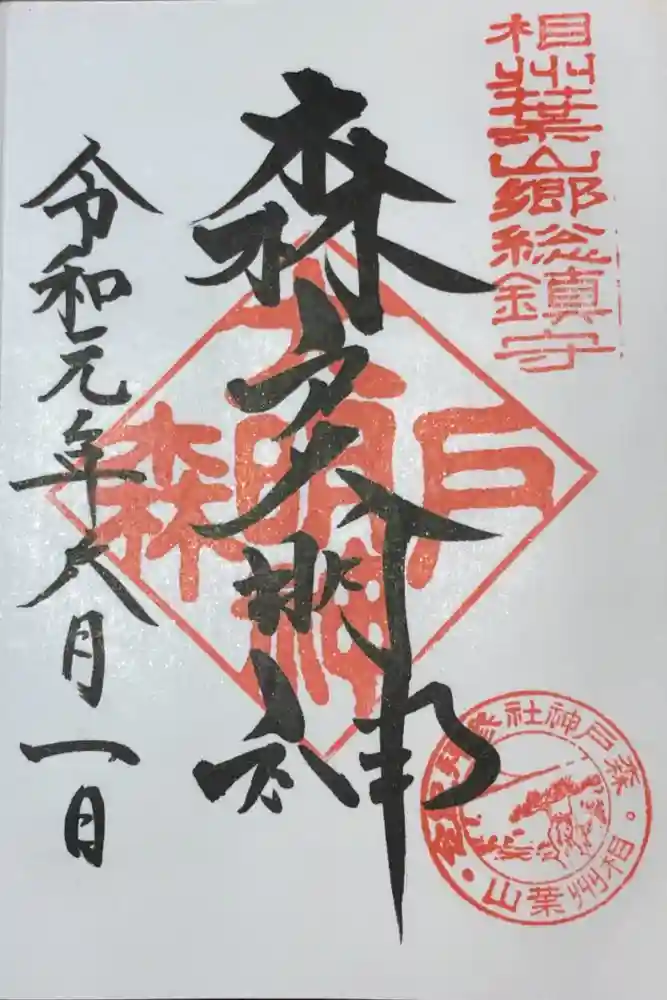 相州葉山郷総鎮守
森戸大明神
令和元年六月一日
森戸大明神
森戸神社
相州葉山